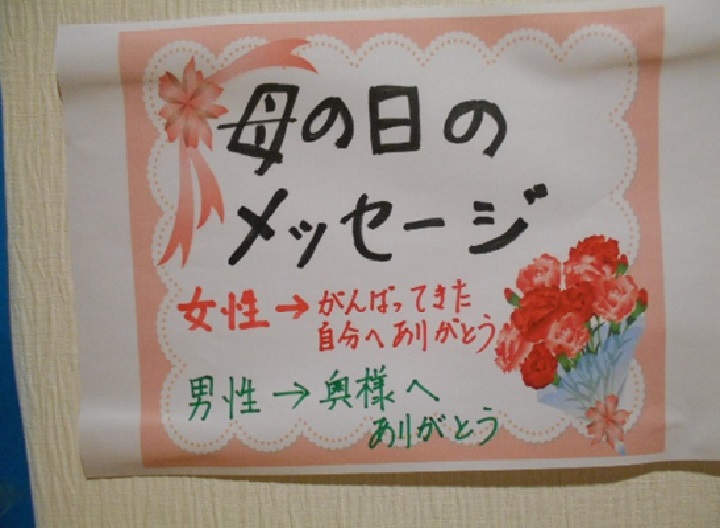 母の日の
メッセージ
女性→がんばってきた
自分へありがとう
男性→奥様へ
ありがとう